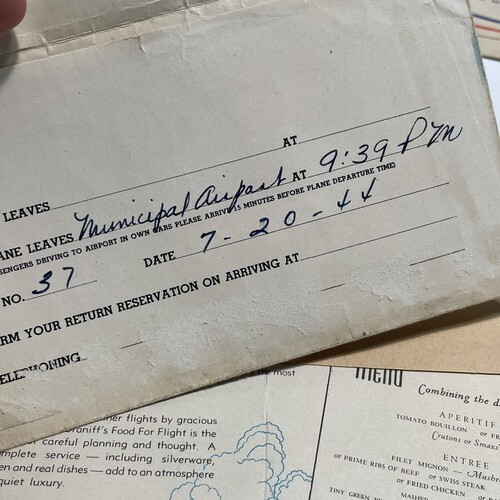 AT
LEAVES
ANE LEAVES Municipal Airport AT 9:39 PM
SSENGERS DRIVING TO AIRPORT IN OWN CARS PLEASE ARRIVE 15 MINUTES BEFORE PLANE DEPARTURE TIME)
NO. 37 DATE 7-20-44
RM YOUR RETURN RESERVATION ON ARRIVING AT
ELEPHONING
the most
her flights by gracious
raniff's Food For Flight is the
careful planning and thought. A
mplete service — including silverware,
en and real dishes — add to an atmosphere
quiet luxury.
menu
Combining the d
APERITIF
TOMATO BOUILLON or FR
Crutons or Smax
ENTREE
FILET MIGNON — Mushr
or PRIME RIBS OF BEEF or SWISS STEAK
or FRIED CHICKEN
MASHE
TINY GREEN